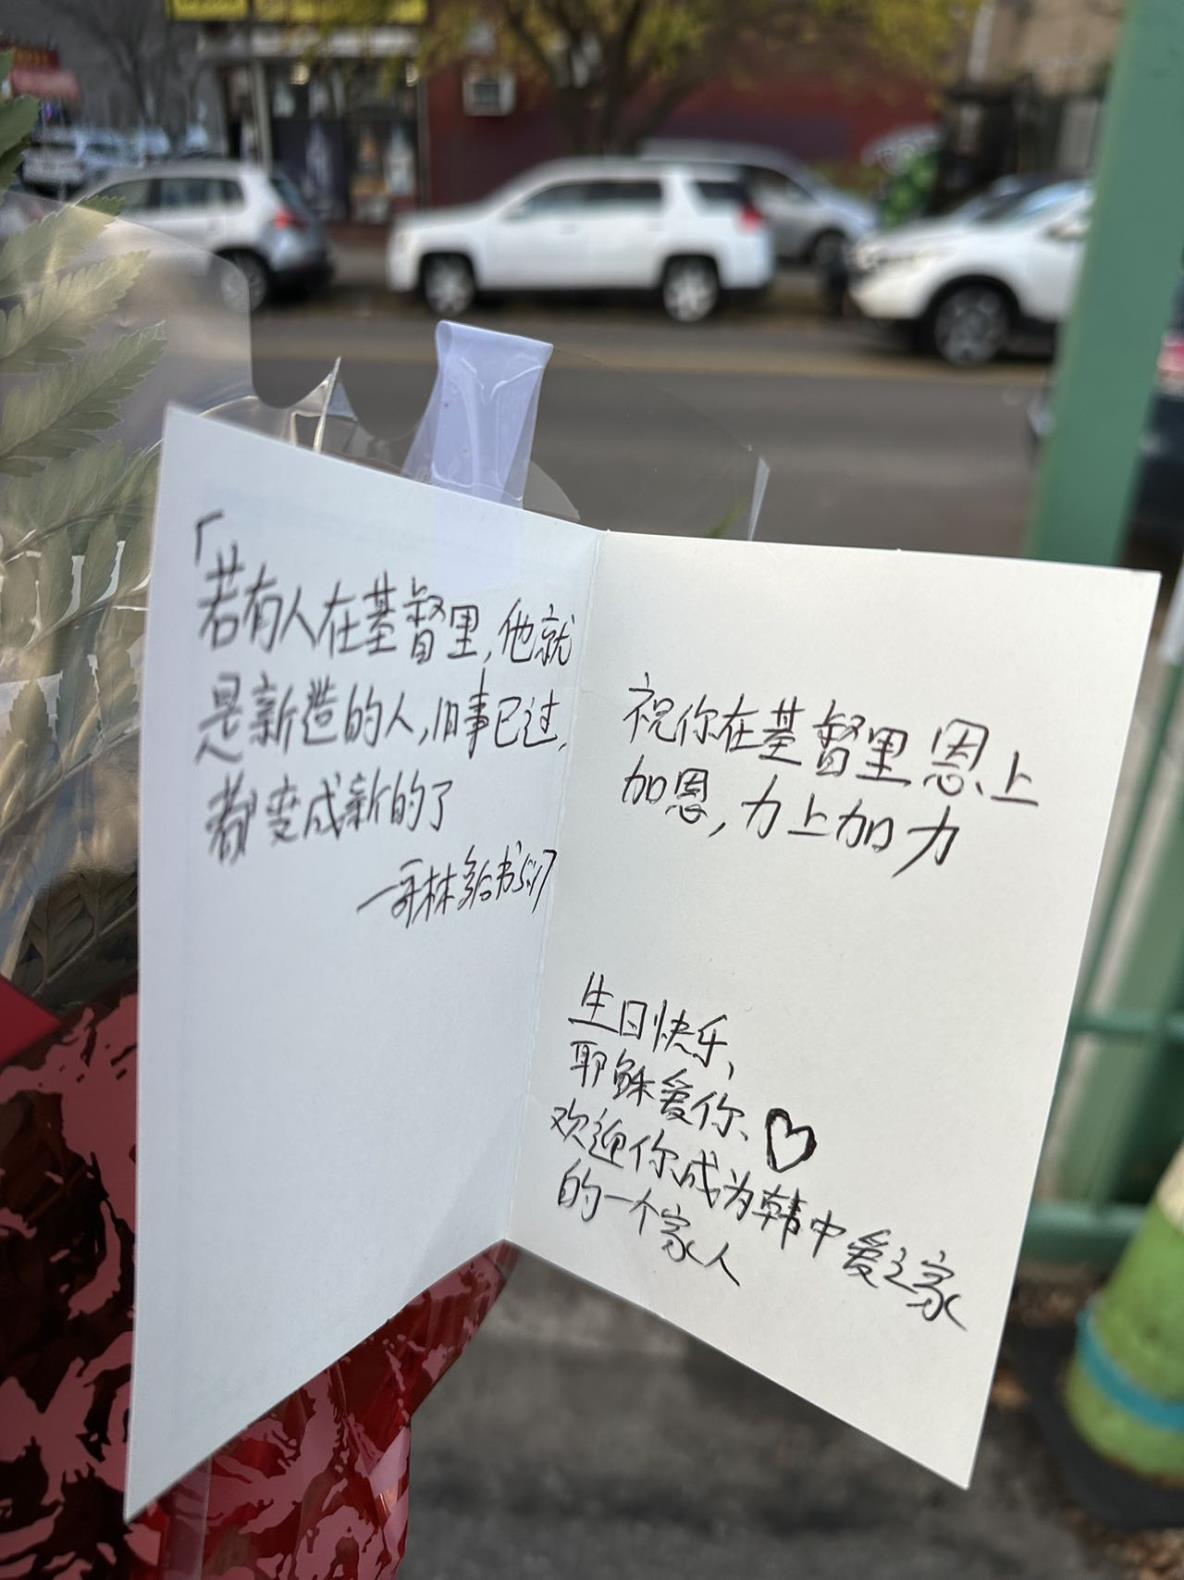 「若有人在基督里,他就
是新造的人,旧事已过,
都变成新的了
—哥林多后书5:17
祝你在基督里恩上
加恩,力上加力
生日快乐、
耶稣爱你、♡
欢迎你成为韩中爱之家
的一个家人